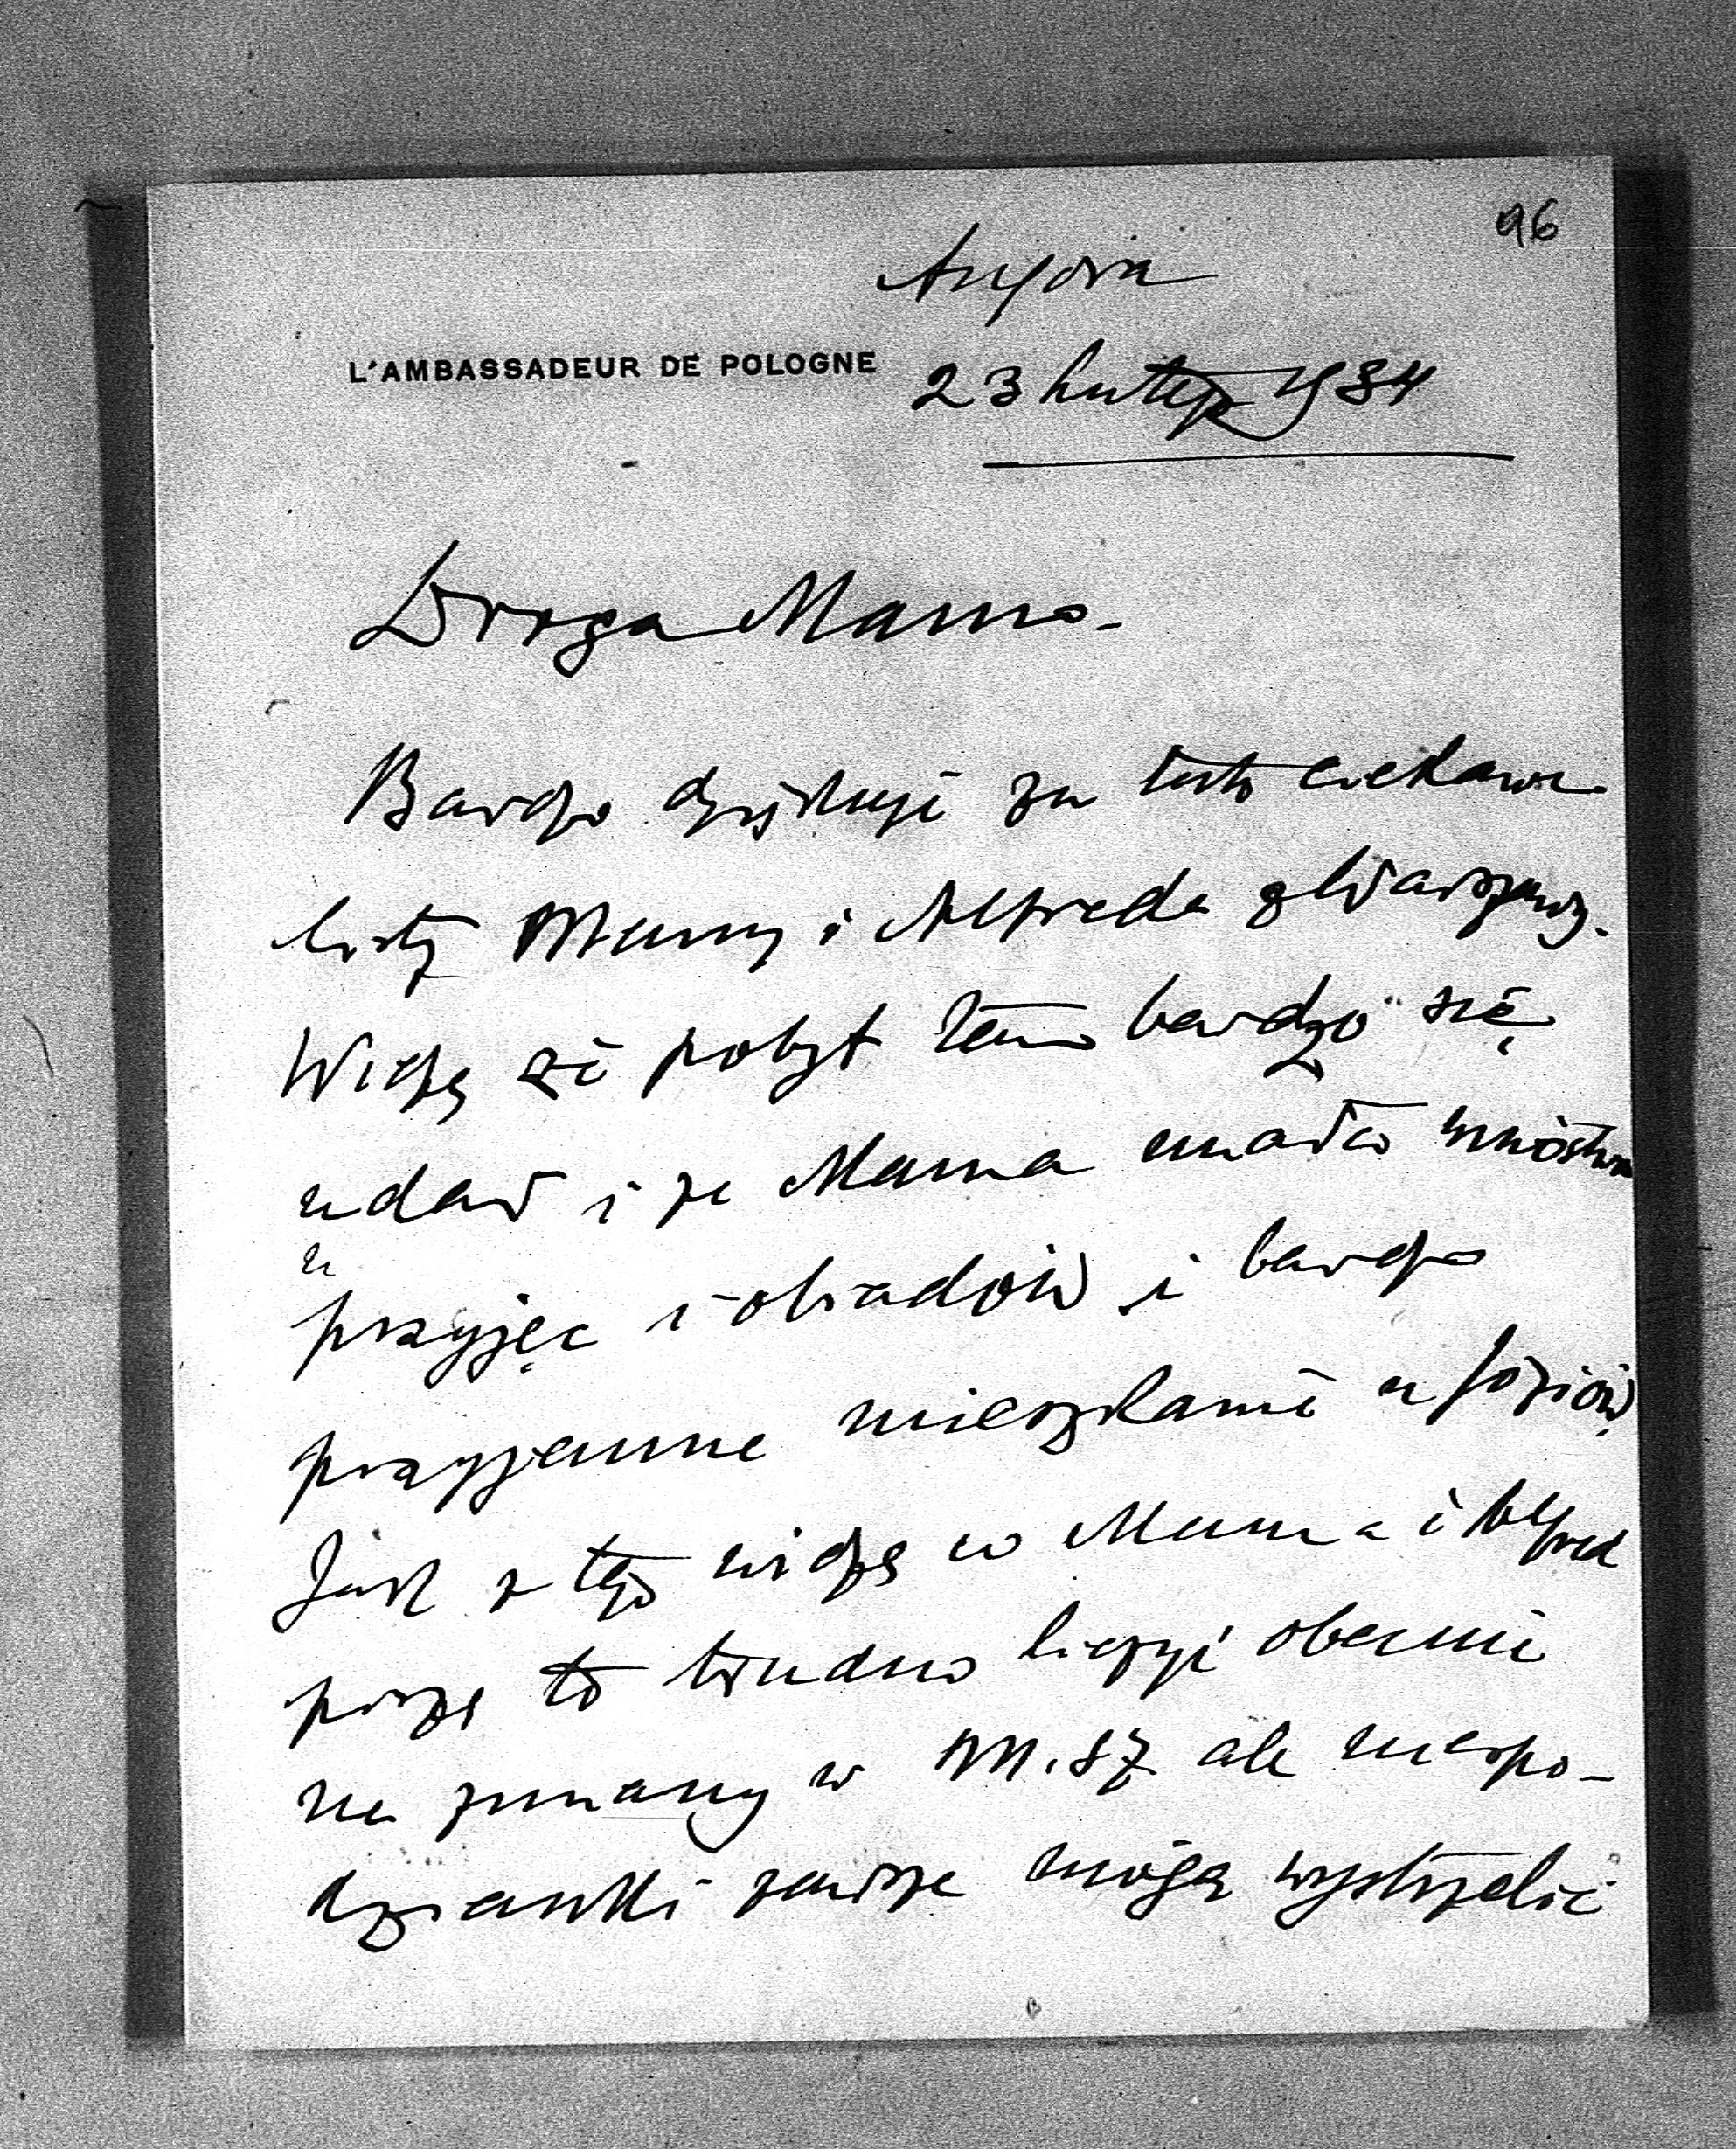 96
Angora
L'AMBASSADEUR DE POLOGNE
23 lutego 1934
Droga Mamo -
Bardzo dziękuję za tak ciekawe
listy Mamy i Alfreda z Warszawy.
Widzę że pobyt tam bardzo się
udał i że Mama miała mnóstwo
przyjęć i obiadów i bardzo
przyjemne mieszkanie u Józiów.
Jak z tego widzę co Mama i Alfred
piszą to trudno liczyć obecnie
na zmiany w M.S.Z. ale niespo-
dzianki zawsze mogą wystrzelić